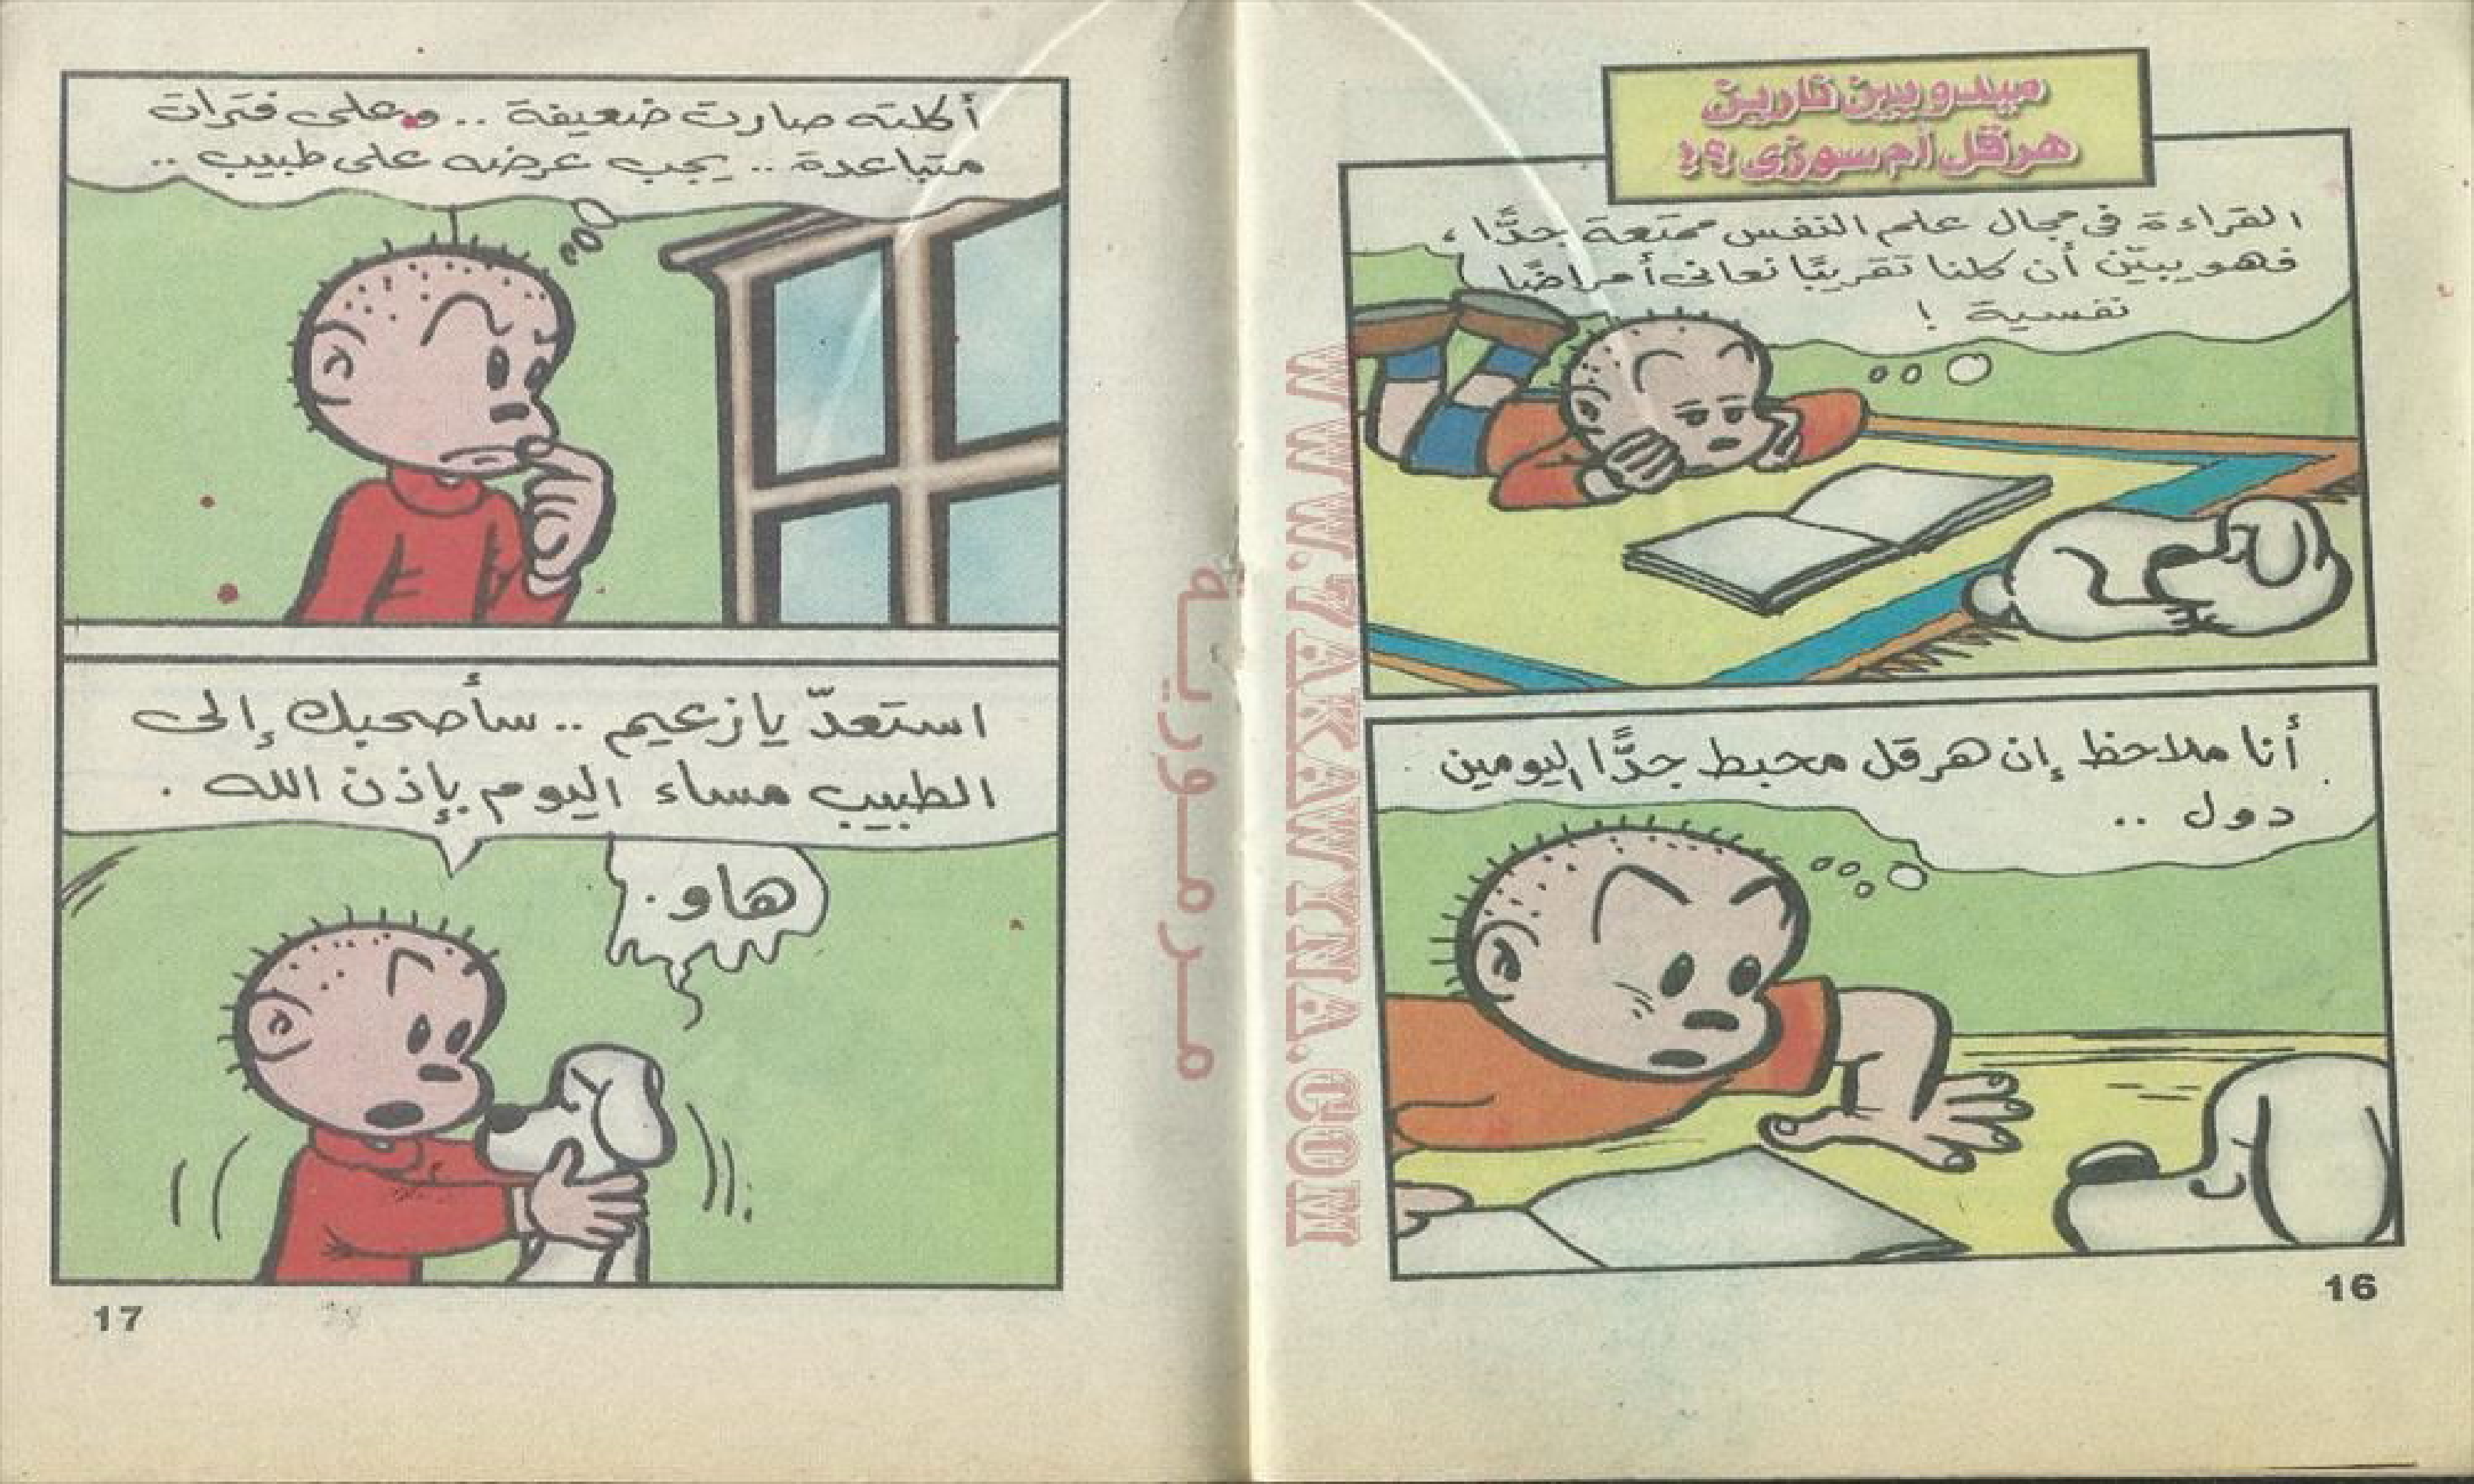 ميدو بين نارين
هرقل أم سوزى ؟!
القراءة فى مجال علم النفس ممتعة جدًّا ،
فهو يبيّن أن كلنا تقريبًا نعانى أمراضًا
نفسية !
أنا ملاحظ إن هرقل محبط جدًّا اليومين
دول ..
16
WWW.7AKAWYNA.COM
مـرمـوريـة
أكلته صارت ضعيفة .. وعلى فترات
متباعدة .. يجب عرضه على طبيب ..
استعدّ يا زعيم .. سأصحبك إلى
الطبيب مساء اليوم بإذن الله .
هاو .
17